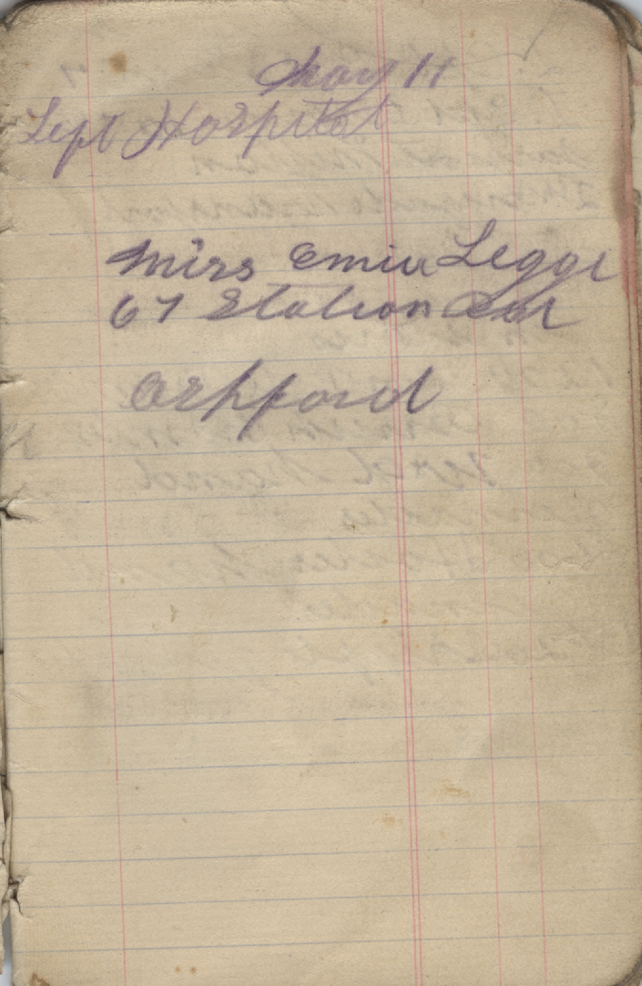 May 11
Left Hospital
Miss Emily Legge
67 Station
Ashford